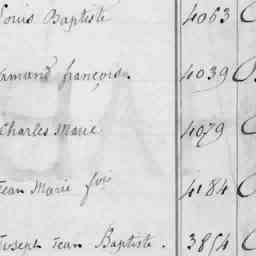 Louis Baptiste 4063
Armand françois 4039
Charles Marie 4079
Jean Marie fois 4184
Joseph Jean Baptiste. 3854